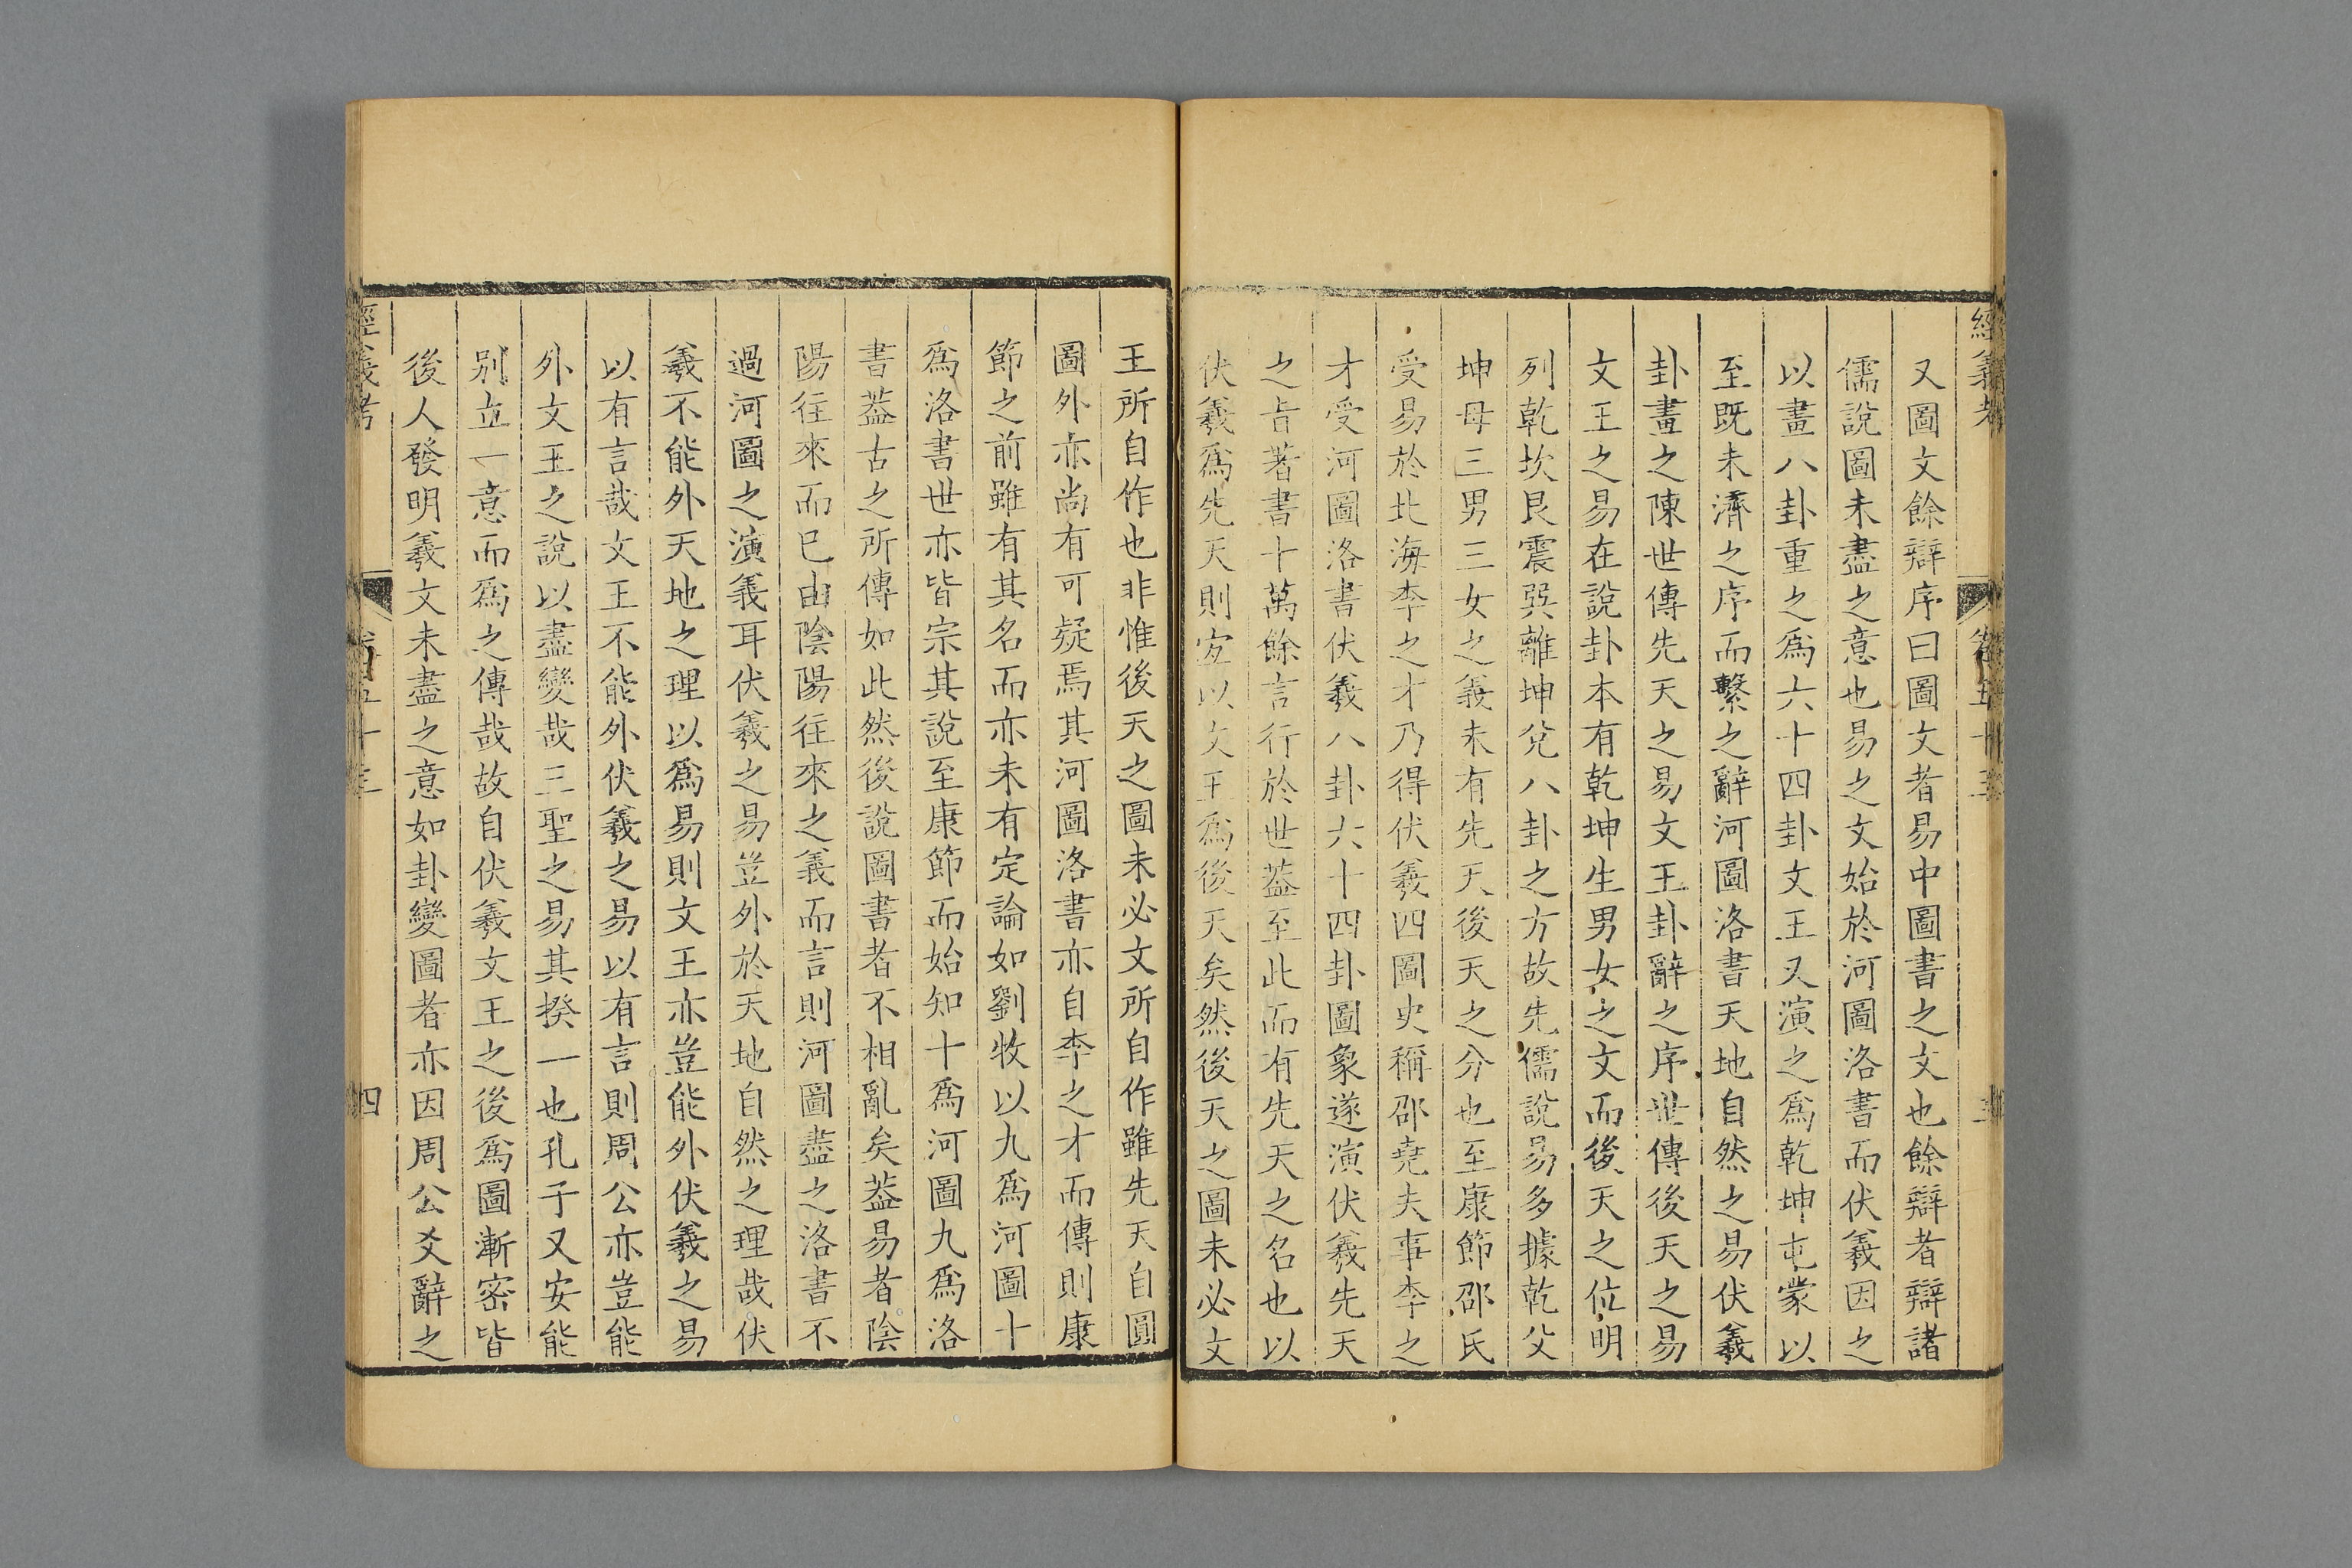 經義考 卷五十三 三
又圖文餘辯序曰圖文者易中圖書之文也餘辯者辯諸
儒說圖未盡之意也易之文始於河圖洛書而伏羲因之
以畫八卦重之爲六十四卦文王又演之爲乾坤屯蒙以
至既未濟之序而繫之辭河圖洛書天地自然之易伏羲
卦畫之陳世傳先天之易文王卦辭之序世傳後天之易
文王之易在說卦本有乾坤生男女之文而後天之位明
列乾坎艮震巽離坤兌八卦之方故先儒說易多據乾父
坤母三男三女之義未有先天後天之分也至康節邵氏
受易於北海李之才乃得伏羲四圖史稱邵堯夫事李之
才受河圖洛書伏羲八卦六十四卦圖象遂演伏羲先天
之旨著書十萬餘言行於世葢至此而有先天之名也以
伏羲爲先天則宐以文王爲後天矣然後天之圖未必文
王所自作也非惟後天之圖未必文所自作雖先天自圓
圖外亦尚有可疑焉其河圖洛書亦自李之才而傳則康
節之前雖有其名而亦未有定論如劉牧以九爲河圖十
爲洛書世亦皆宗其說至康節而始知十爲河圖九爲洛
書葢古之所傳如此然後說圖書者不相亂矣葢易者陰
陽往來而已由陰陽往來之義而言則河圖盡之洛書不
過河圖之演義耳伏羲之易豈外於天地自然之理哉伏
羲不能外天地之理以爲易則文王亦豈能外伏羲之易
以有言哉文王不能外伏羲之易以有言則周公亦豈能
外文王之說以盡變哉三聖之易其揆一也孔子又安能
别立一意而爲之傳哉故自伏羲文王之後爲圖漸密皆
後人發明羲文未盡之意如卦變圖者亦因周公爻辭之
經義考 卷五十三 四